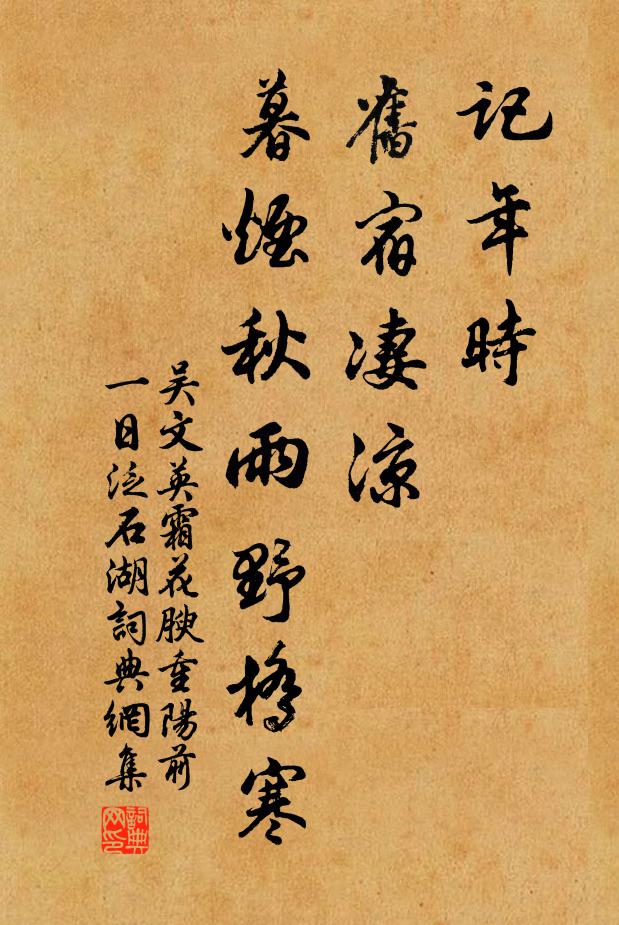 記年時
舊宿淒涼
暮煙秋雨野橋寒
吴文英霜花腴重陽前
一日泛石湖詞典網集
詞典网印